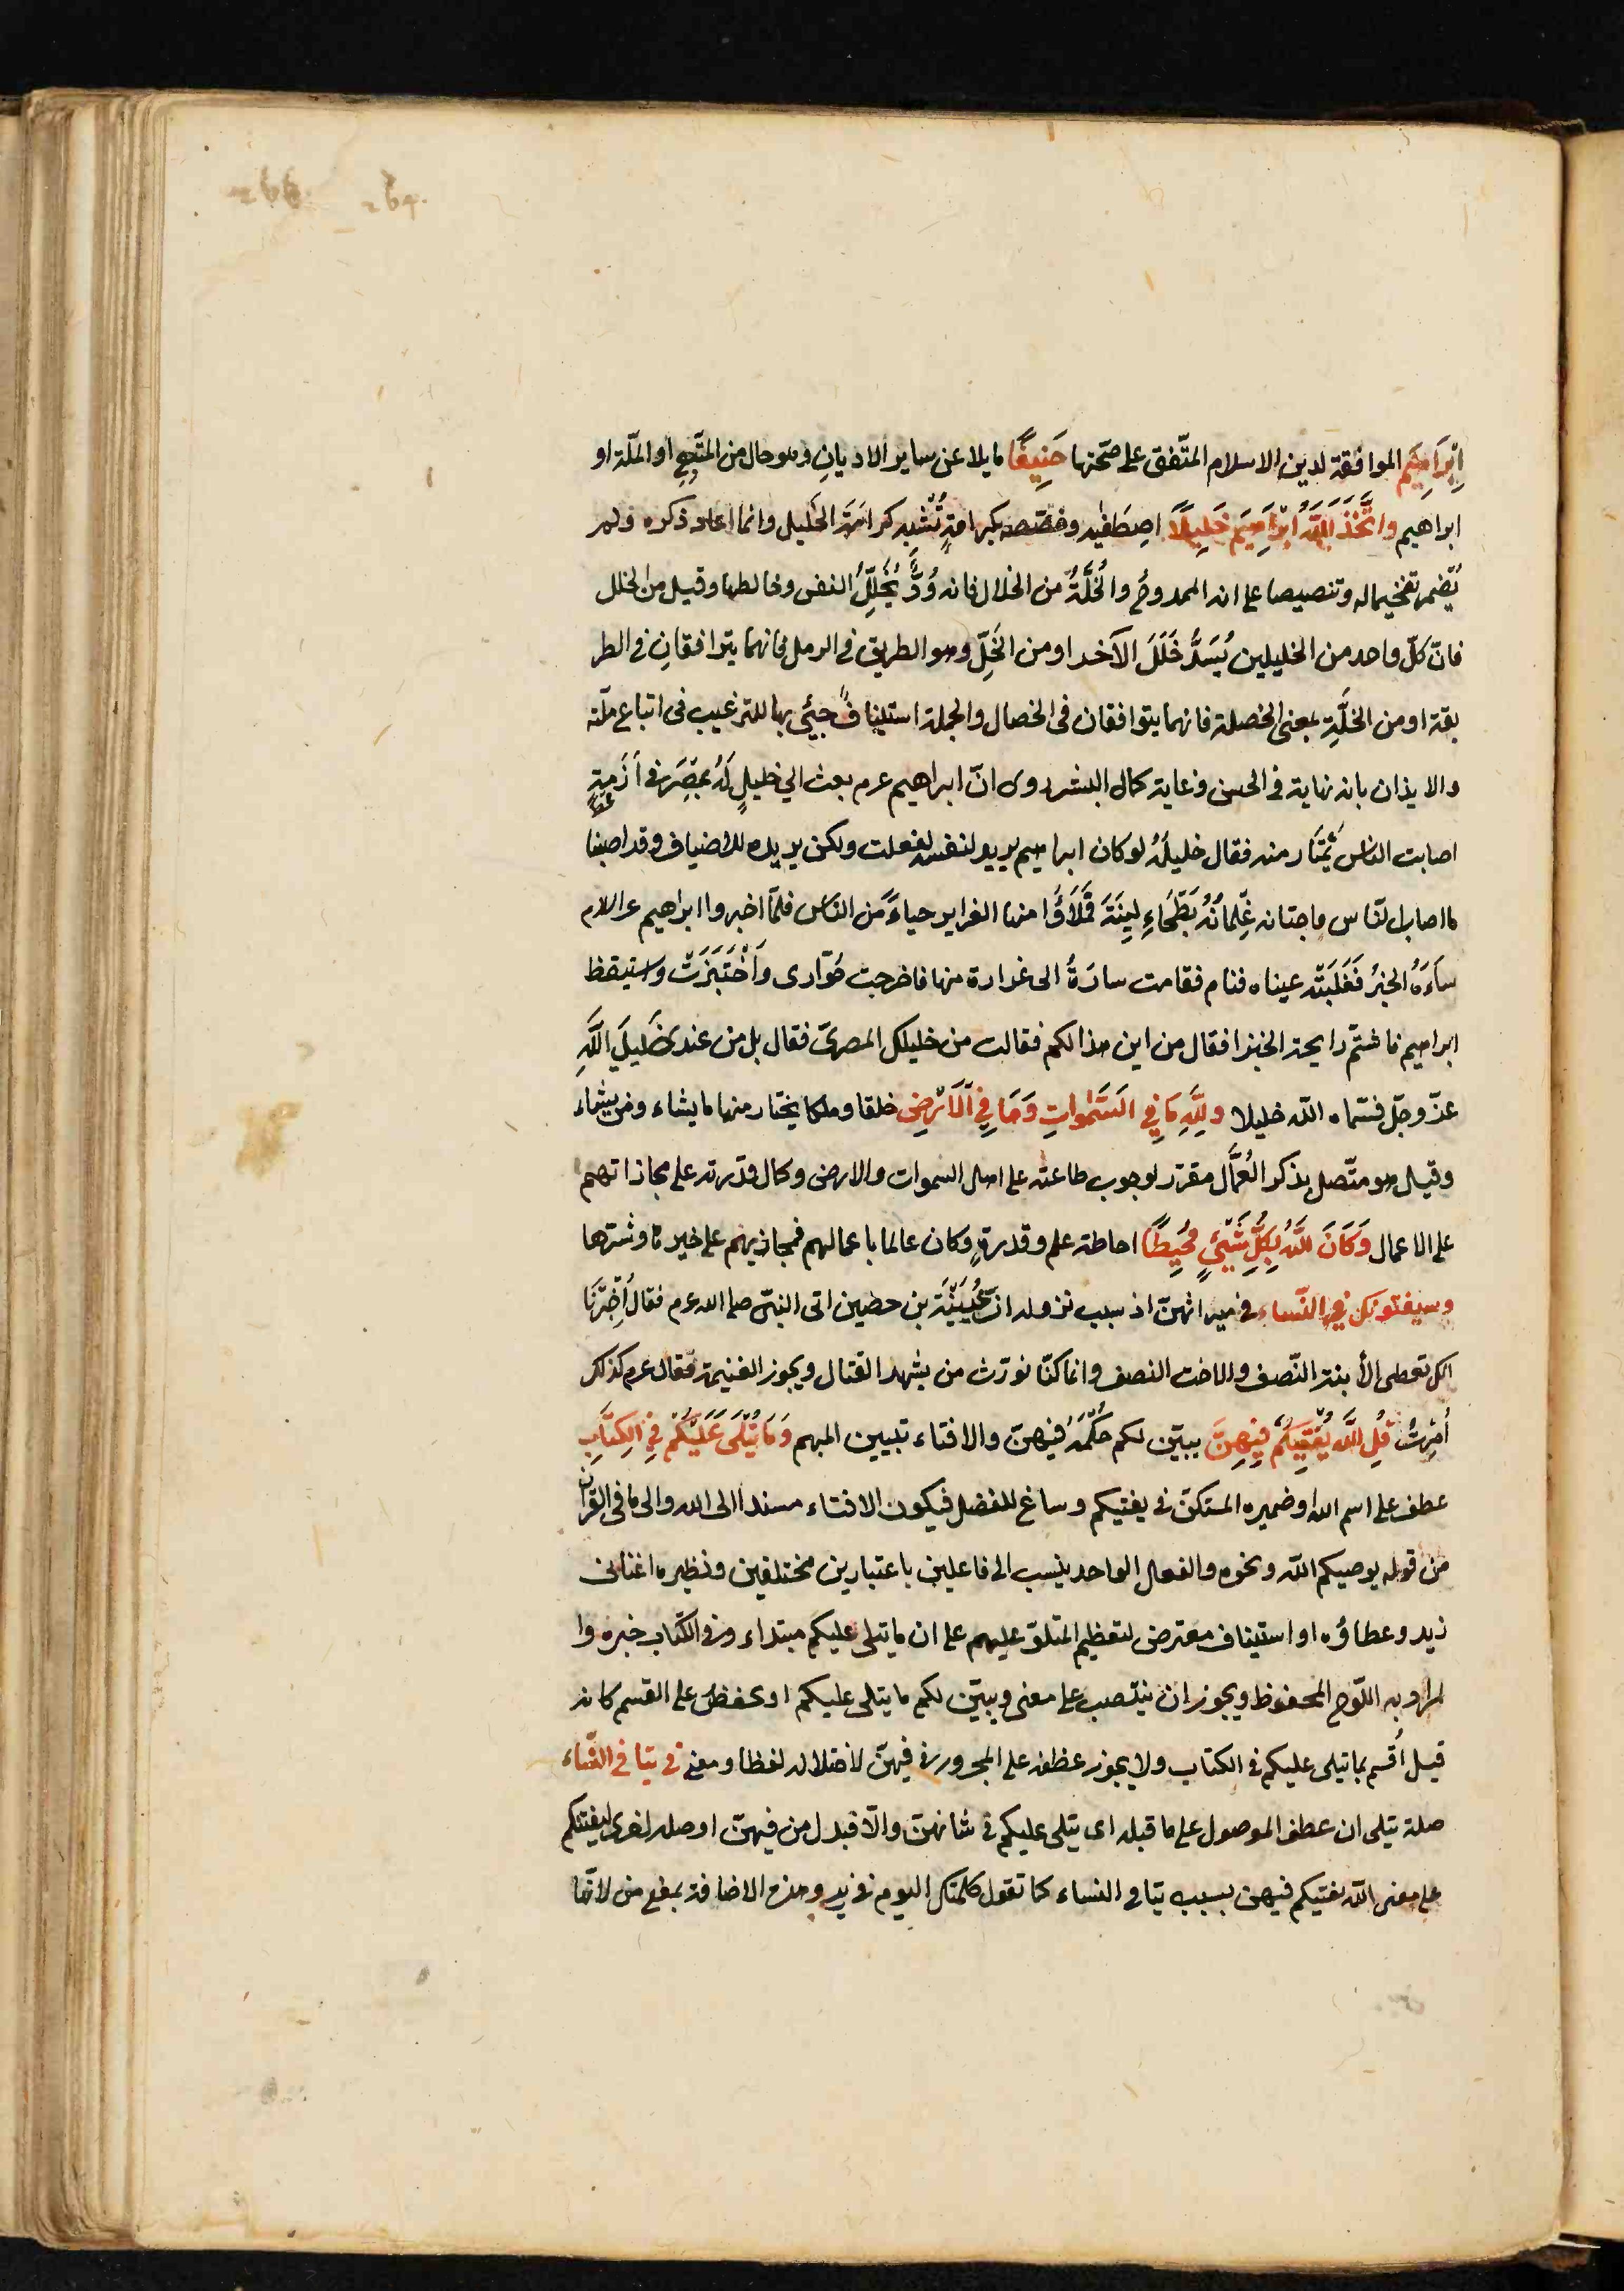 اِبْرَاهِيَم الموافقة لدين الاسلام المتّفق على صحّتها حَنِيفًا مايلا عن ساير الاديانِ وهو حال من المتّبعِ او الملّة او
ابراهيم واتَّخَذَ اللَّهُ اِبْرَاهِيَم خَلِيلًا اصِطَفيه وخصّصه بكرامةٍ تُشْبِه كرامَةَ الخليل وانما اعاد ذكره ولم
يُضمر تفخيما له وتنصيصا على انه الممدوحُ والخُلَّةُ من الخلال فانه وُدٌّ يُخَلِّلُ النفس وخالطها وقيل من الخلل
فانّ كلّ واحد من الخليلين يُسَدُّ خَلَلَ الآخر او من الخَلِّ وهو الطريق في الرمل فانهما يترافقانِ في الطر
يقة او من الخَلَّةِ بمعنى الخصلة فانهما يتوافقان فى الخصال والجملة استينافٌ جيئى بها للترغيب فى اتباع ملّته
والايذان بانه نهاية في الحسن وغاية كمال البشر روى انّ ابراهيم عرم بعث الي خليلٍ لَهُ بمِصْرَ في اَزَمةٍ
اصابت الناس يَمْتَار منه فقال خليلُهُ لوكان ابراهيم يريد لنفسه لفعلت ولكن يريده للاضياف وقد اصبنا
ما اصاب لنّاس فاجتاز غِلمانُهُ بَطْحَاءِ لينَةَ فَمَلَاؤُا منها الغراير حياءً من الناس فلمّا اخبروا ابراهيم عرالام
ساءَهُ الخبرُ فَغَلَبَتْه عيناه فنام فقامت سارَةُ الى غرارة منها فاخرجت حَوّارى واَخْتَبَزَتْ واستيقظ
ابراهيم فاشتمّ رايحة الخبز افقال من اين هذا لكم فقالت من خليلك المصرىّ فقال بل من عند خَليلَي اللَّهِ
عزّ وجلّ فسّماه اللّه خليلا ولِلَّهِ مَافِي السَّمٰوَاتِ وَمَا فِي اْلاَرْضِ خلقا وملكا يختار منهما ما يشاء ومن يشاء
وقيل هو متّصل بذكر العُمَّال مقرّر لوجوب طاعته على اهل السموات والارض وكال قدرته على مجازاتهم
على الاعمال وَكَانَ اللَّهُ بِكُلِّ شَيْئٍ مُحِيطًا احاطة علم وقدرةٍ وكان عالما باعمالهم فيجازيهم على خيرها وشرّها
وسيفتونكن في النّساء في ميراثهنّ اذ سبب نزوله انّ عُيَيْنَة بن حصين اتى النبيّ صلى الله عرم فقال اُخِبْرَنَا
انك تعطى الأبنة النّصف والاخت النصف وانما كنّا نورّث من يشهد القتال ويحوز الغنيمة فقال عرم كذلك
اُمِرْتُ قُلِ اللَّهُ يُفْتِيكُم فِيهِنَّ يبيّن لكم حُكْمَهُ فيهنّ والافتاء تبيين المبهم وَمَا يُتْلَى عَلَيْكُم فِي الكِتَابِ
عطف على اسم الله او ضميره المستكنّ في يفتيكم وساغ للفصل فيكون الافتاء مسندا الى الله والى ما فى القرآن
من قوله يوصيكم اللّه ونحوه والفعل الواحد ينسب الى فاعلين باعتبارين مختلفين ونظيره اغنانى
زيد وعطاؤه او استيناف معترض لتعظيم المتلوّ عليهم على ان ما يتلى عليكم مبتداء وفي الكتاب خبره وا
لمراد به اللّوح المحفوظ ويجوز ان ينتصب على معنى ويبيّن لكم ما يتلى عليكم او يخفض على القسم كانه
قيل اُقسم بما يتلى عليكم في الكتاب ولا يجوز عطفه على المجرور في فيهنّ لاختلاله لفظا ومعنى في يتامى النّساء
صلة يتلى ان عطف الموصول على ما قبله اى يتلى عليكم فى شانهنّ والّا فبدل من فيهنّ او صله اخرى ليفتيكم
على معنى اللّه يفتيكم فيهن بسبب يتامى النساء كما تقول كلمتك اليوم فى زيد وهذه الاضافة بمعنى من لانّها